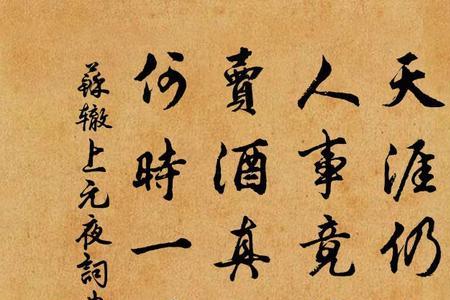 天涯仍
人事竟
賣酒真
何時一
蘇辙上元夜詞